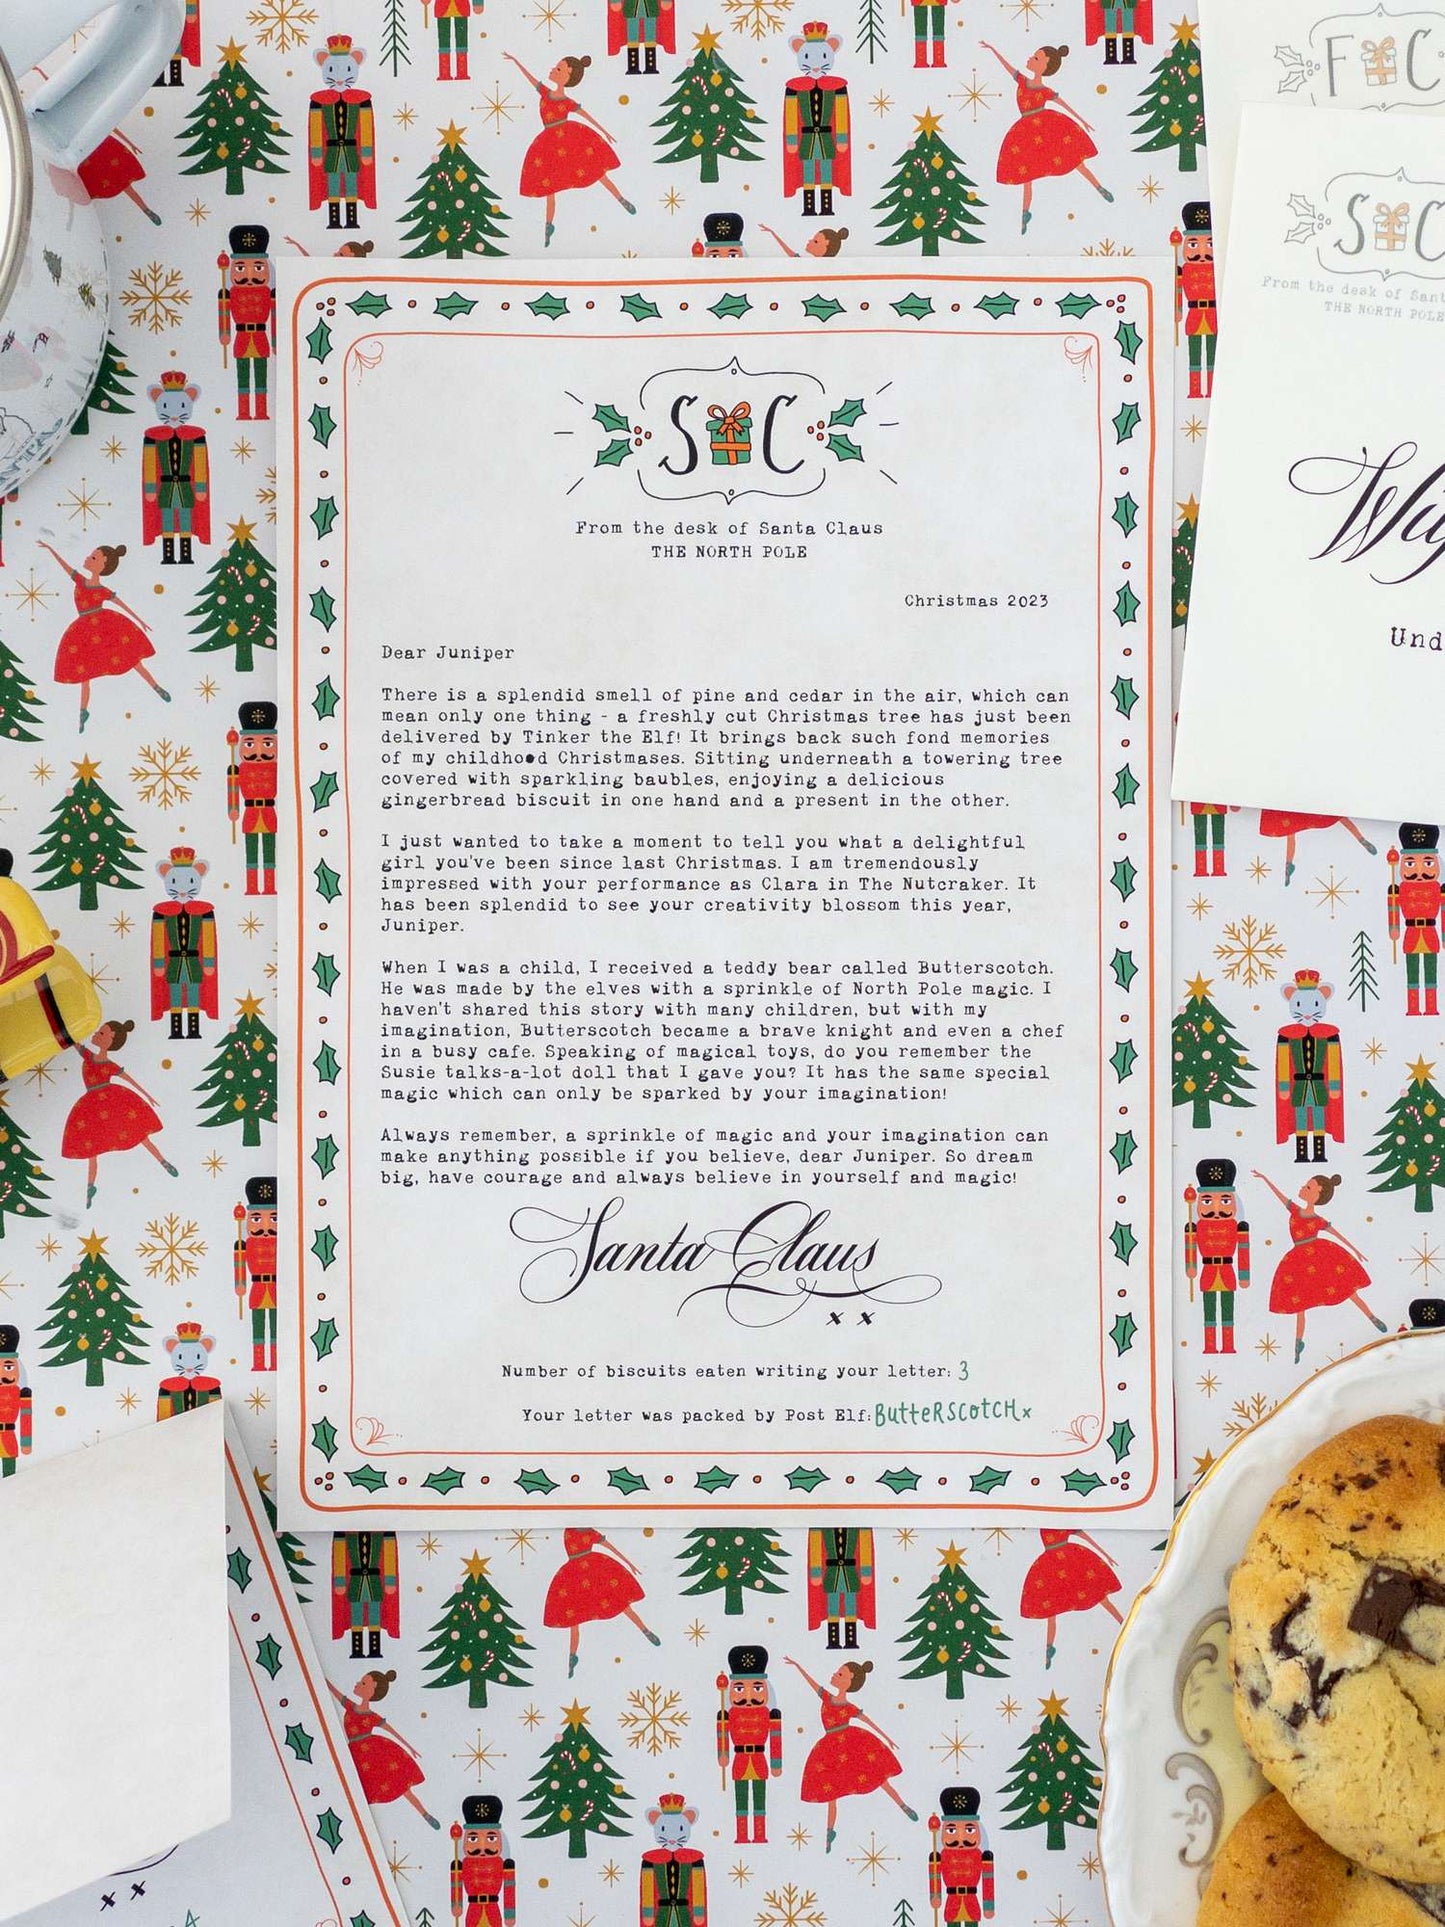 S C
From the desk of Santa Claus
THE NORTH POLE
Christmas 2023
Dear Juniper
There is a splendid smell of pine and cedar in the air, which can
mean only one thing - a freshly cut Christmas tree has just been
delivered by Tinker the Elf! It brings back such fond memories
of my childhood Christmases. Sitting underneath a towering tree
covered with sparkling baubles, enjoying a delicious
gingerbread biscuit in one hand and a present in the other.
I just wanted to take a moment to tell you what a delightful
girl you've been since last Christmas. I am tremendously
impressed with your performance as Clara in The Nutcraker. It
has been splendid to see your creativity blossom this year,
Juniper.
When I was a child, I received a teddy bear called Butterscotch.
He was made by the elves with a sprinkle of North Pole magic. I
haven't shared this story with many children, but with my
imagination, Butterscotch became a brave knight and even a chef
in a busy cafe. Speaking of magical toys, do you remember the
Susie talks-a-lot doll that I gave you? It has the same special
magic which can only be sparked by your imagination!
Always remember, a sprinkle of magic and your imagination can
make anything possible if you believe, dear Juniper. So dream
big, have courage and always believe in yourself and magic!
Santa Claus
x x
Number of biscuits eaten writing your letter: 3
Your letter was packed by Post Elf: ButteRScotCHx
F C
S C
From the desk of
THE NORTH POLE
x x